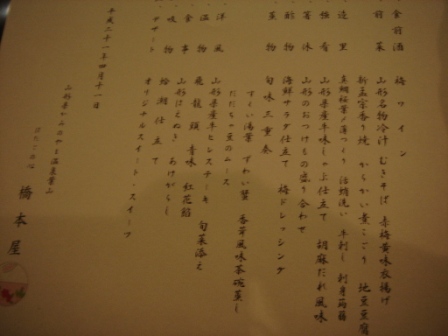 ・食前酒　梅ワイン
・前菜　山形名物冷汁　むきそば　赤梅黄味衣揚げ
新玉　香り焼　からかい煮こごり　地豆豆腐
・造里　真鯛　薄づくり　活蛸洗い　平刺し　刺身蒟蒻
・強肴　山形県産牛味しゃぶ仕立て　胡麻だれ風味
・箸休　山形のおつけもの盛り合わせ
・酢物　海鮮サラダ仕立て　梅ドレッシング
・蒸物　旬味三重奏
すくい湯葉　ずわい蟹　香草風味茶碗蒸し
だだちゃ豆のムース
・洋風　山形県産牛ヒレステーキ　旬菜添え
・温物　飛龍頭　香味　紅花餡
・食事　山形はえぬき　あけがらし
・吸物　蛤潮仕立て
・デザート　オリジナルスイート・スイーツ
平成二十一年四月十一日
山形県かみのやま温泉葉山
橋本屋